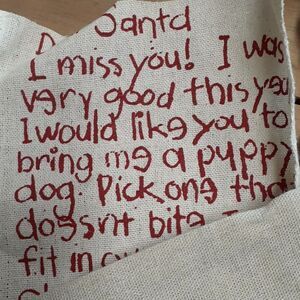 Santa
I miss you! I was
very good this yea
I would like you to
bring me a puppy
dog. Pick one tha
doesnt bite.
fit in